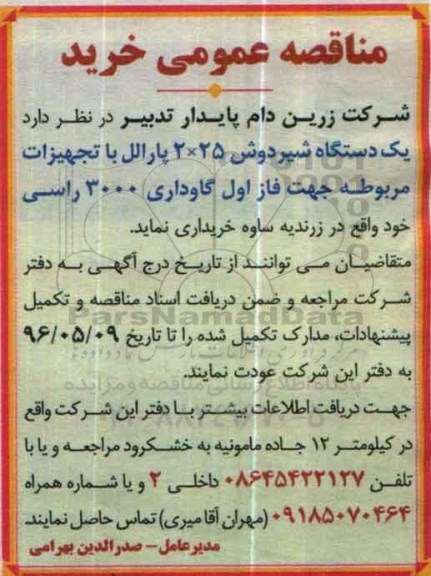 مناقصه عمومی خرید
شرکت زرین دام پایدار تدبیر در نظر دارد
یک دستگاه شیردوش ۲۵×۲ پارالل با تجهیزات
مربوطه جهت فاز اول گاوداری ۳۰۰۰ راسی
خود واقع در زرندیه ساوه خریداری نماید.
متقاضیان می توانند از تاریخ درج آگهی به دفتر
شرکت مراجعه و ضمن دریافت اسناد مناقصه و تکمیل
ParsNamadData
پیشنهادات، مدارک تکمیل شده را تا تاریخ ۹۶/۰۵/۰۹
به دفتر این شرکت عودت نمایند.
پایگاه اطلاع رسانی مناقصه و مزایده
جهت دریافت اطلاعات بیشتر با دفتر این شرکت واقع
در کیلومتر ۱۲ جاده مامونیه به خشکرود مراجعه و یا با
تلفن ۰۸۶۴۵۴۲۲۱۲۷ داخلی ۲ و یا شماره همراه
۰۹۱۸۵۰۷۰۴۶۴ (مهران آقا میری) تماس حاصل نمایند.
مدیرعامل – صدرالدین بهرامی